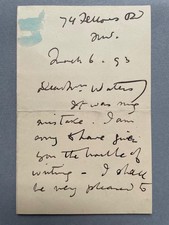 74 Fellows Rd
N.W.
March 6. 93
Dear Mrs Waters
It was my
mistake. I am
sorry to have given
you the trouble of
writing - I shall
be very pleased to